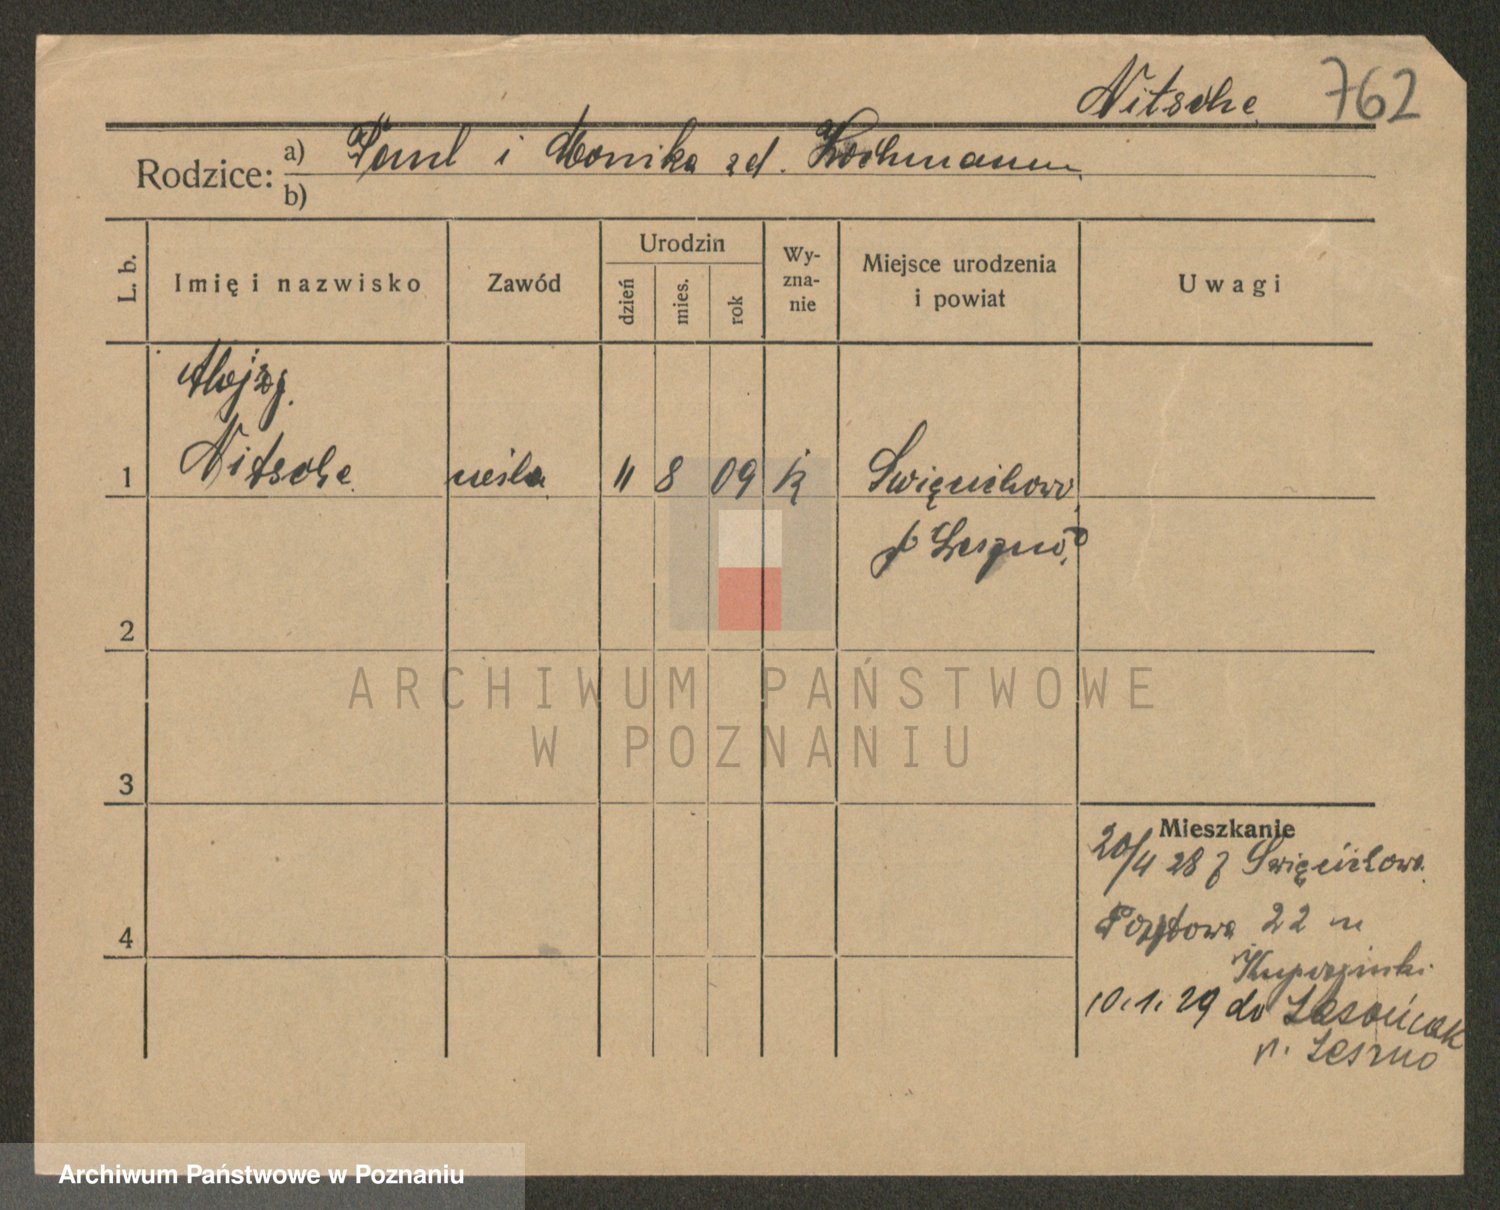 Nitsche 762
Rodzice: a) Paul i Monika zd. Kochmann
b)
L. b. Imię i nazwisko Zawód Urodzin dzień mies. rok Wy-zna-nie Miejsce urodzenia i powiat Uwagi
Alojzy
1 Nitsche cieśla 11 8 09 k Święciechowo
p Leszno
2
ARCHIWUM PAŃSTWOWE
W POZNANIU
3
Mieszkanie
20/4 28 z Święciechowa
4 22 m
10.1.29 do
p. Leszno
Archiwum Państwowe w Poznaniu